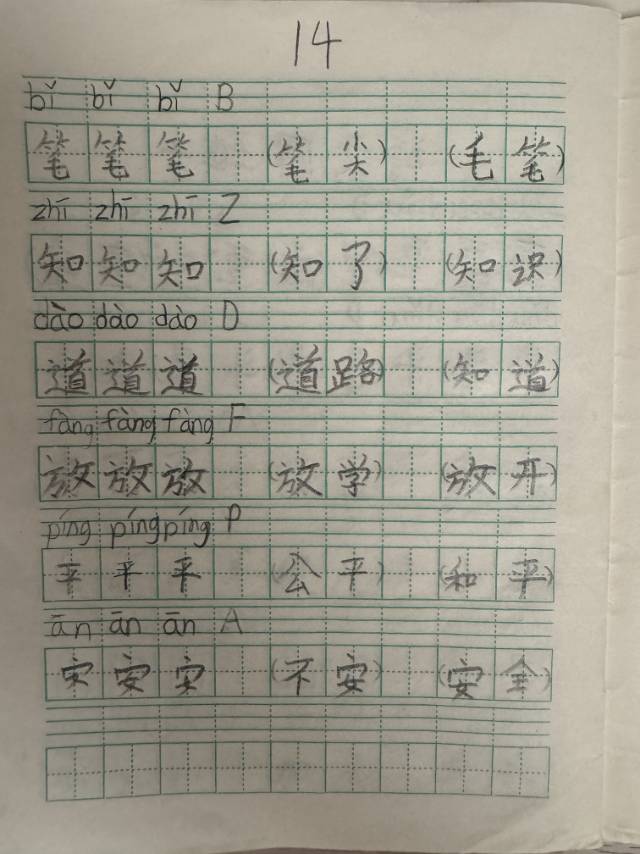 14
bǐ bǐ bǐ B
笔 笔 笔 (笔 尖) (毛 笔)
zhī zhī zhī Z
知 知 知 (知 了) (知 识)
dào dào dào D
道 道 道 (道 路) (知 道)
fàng fàng fàng F
放 放 放 (放 学) (放 开)
píng píng píng P
平 平 平 (公 平) (和 平)
ān ān ān A
安 安 安 (不 安) (安 全)